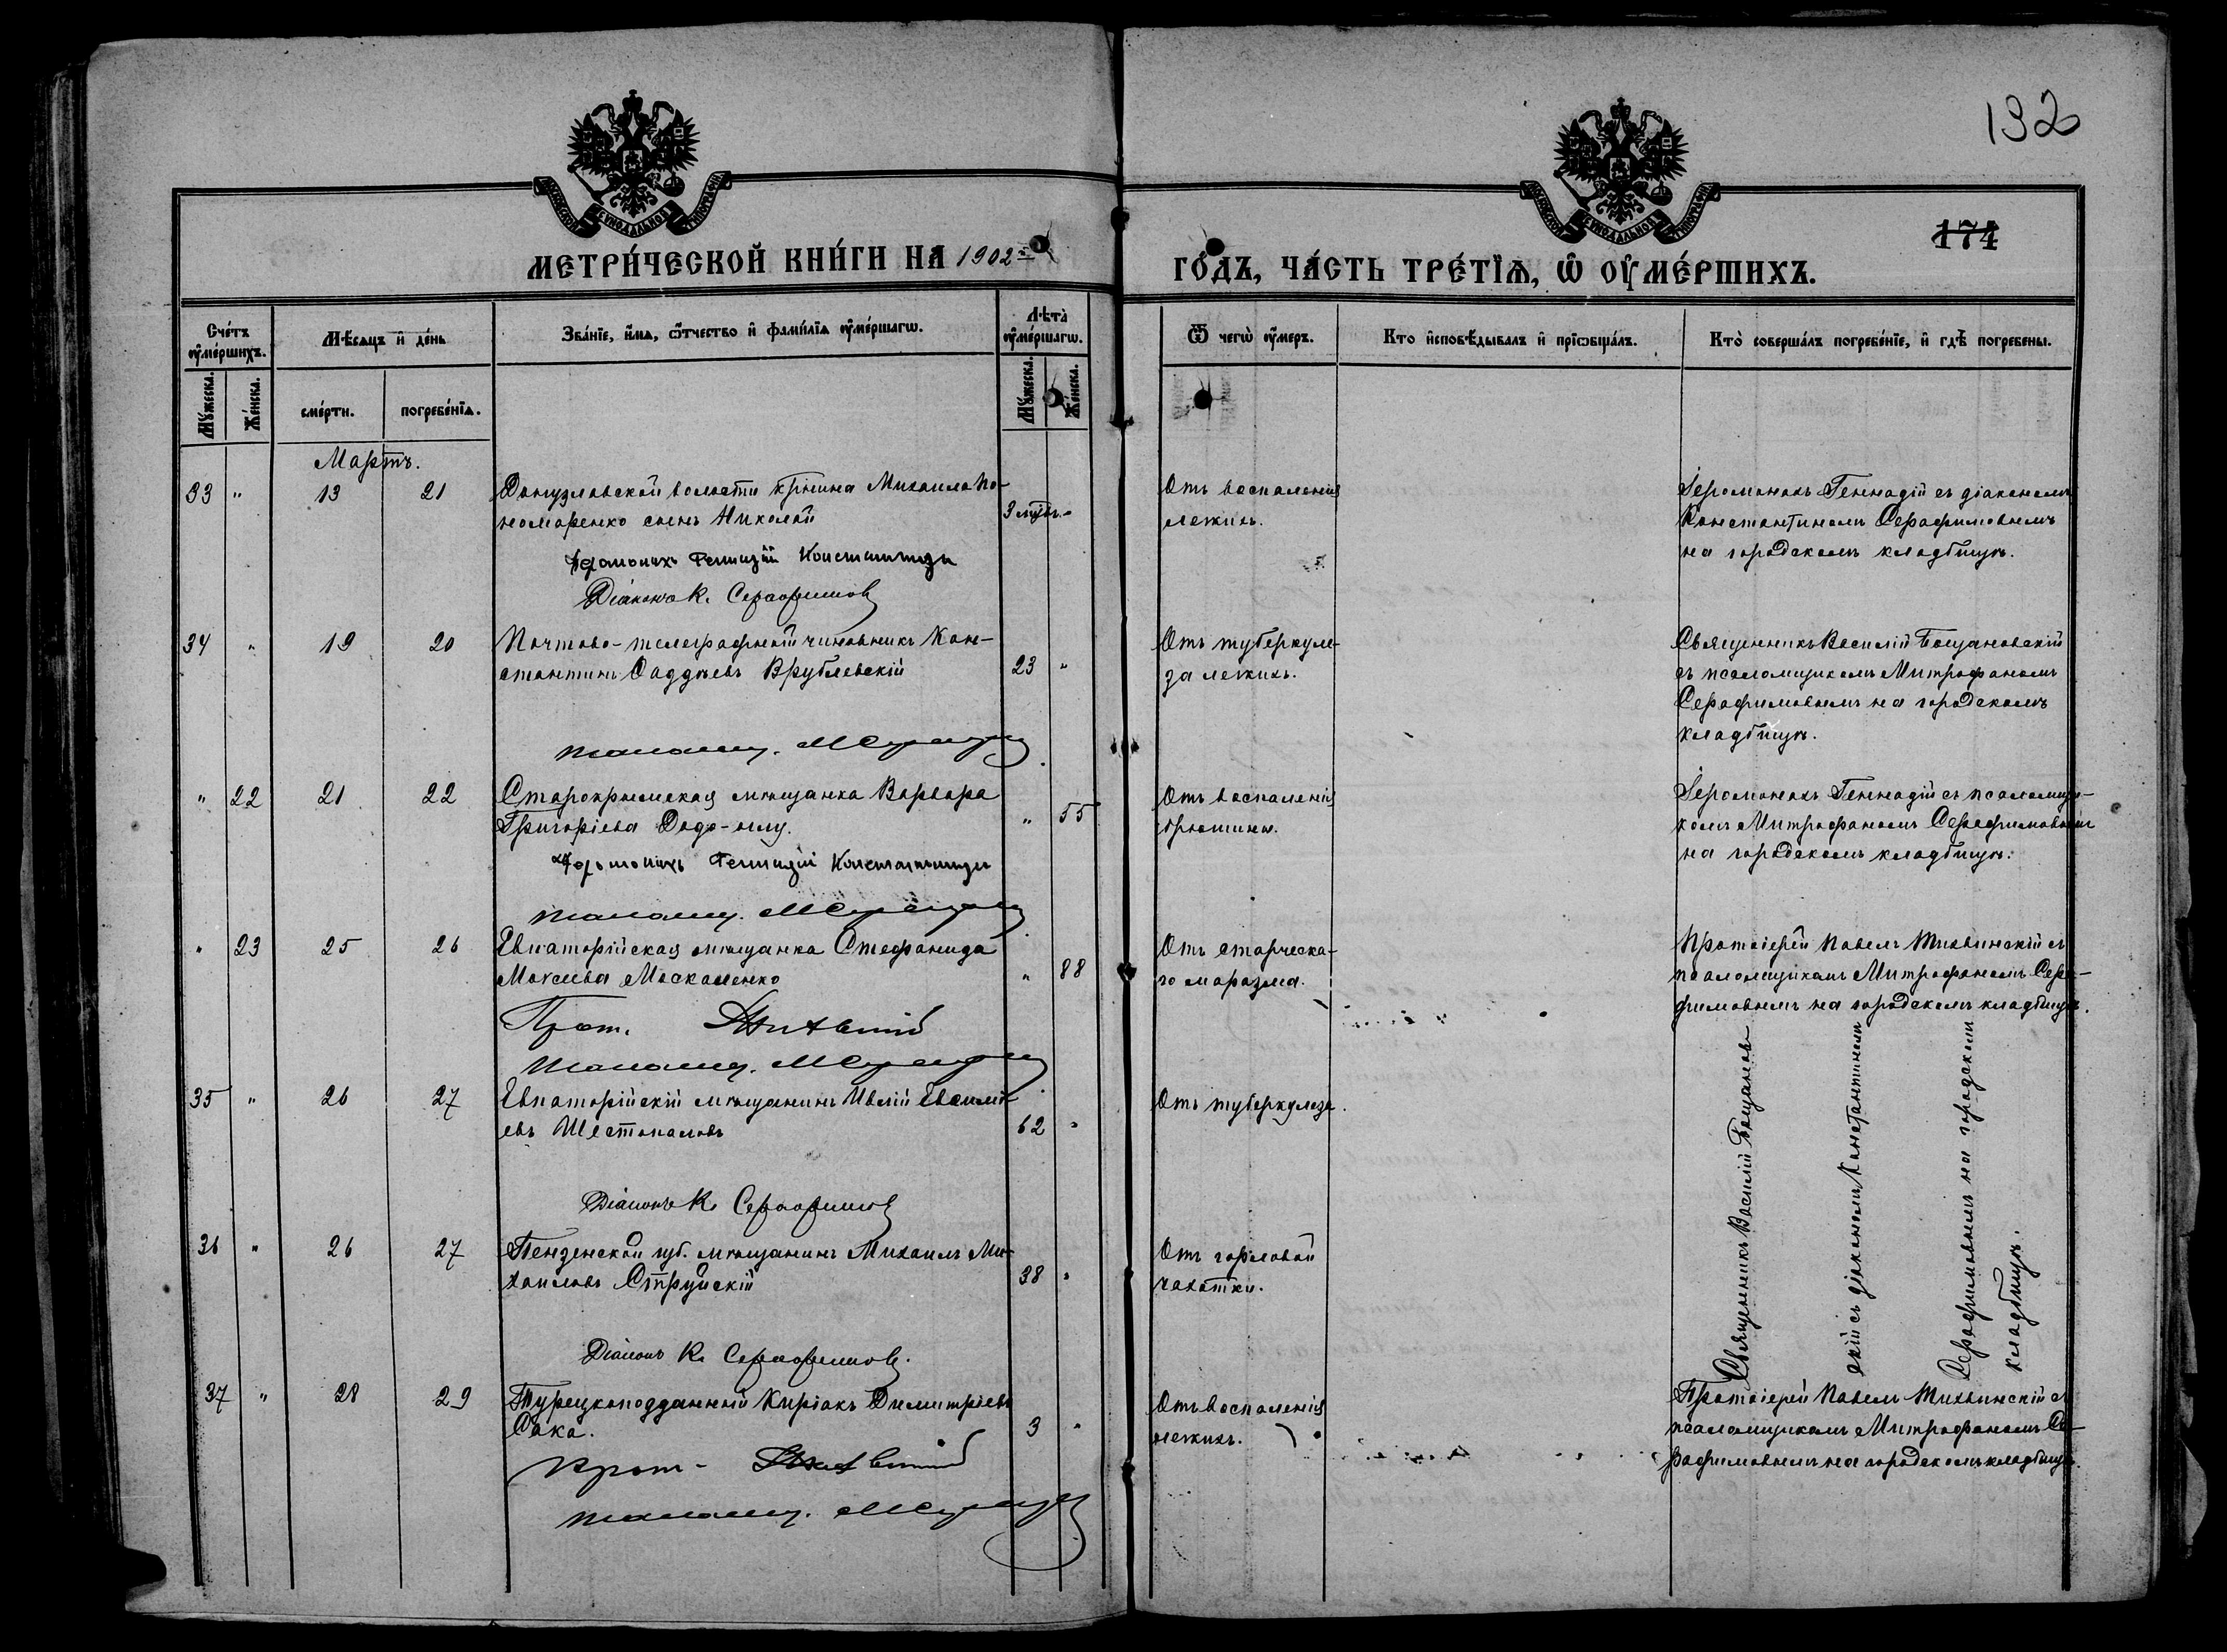 132
174
МОСКОВСКОЙ СѴНОДАЛЬНОЙ ТИПОГРАФІИ
МОСКОВСКОЙ СѴНОДАЛЬНОЙ ТИПОГРАФІИ
МЕТРИ́ЧЕСКОЙ КНИ́ГИ НА 1902 й
ГО́ДЪ, ЧА́СТЬ ТРЕ́ТЇѦ, Ѡ҆ ОУ҆МЕ́РШИХЪ.
Сче́тъ оу҆ме́ршихъ.
Мꙋ́жеска.
Же́нска.
Мѣ́сѧцъ и҆ де́нь
сме́рти.
погребе́нїѧ.
Зва́нїе, и҆́мѧ, ѻ҆́тчество и҆ фами́лїѧ оу҆ме́ршагѡ.
Лѣта̀ оу҆ме́ршагѡ.
Мꙋ́жеска.
Же́нска.
Ѿ чегѡ̀ оу҆́меръ.
Кто и҆сповѣ́дывалъ и҆ прїѡбща́лъ.
Кто̀ соверша́лъ погребе́нїе, и҆ гдѣ̀ погребены.
Мартъ.
33 " 13 21
Донузлавской волости кр҃нина Михаила По-
номаренко сынъ Николай
3 мѣс. "
Отъ воспаленія
легкихъ.
Іеромонахъ Геннадій съ діакономъ
Константиномъ Серафимовымъ
на городскомъ кладбищѣ.
Іеромонахъ Геннадій
Діаконъ К. Серафимовъ
34 " 19 20
Почтово-телеграфный чиновникъ Кон-
стантинъ Фаддѣевъ Врублевскій
23 "
Отъ туберкуле-
за легкихъ.
Священникъ Василій Бощановскій
съ псаломщикомъ Митрофаномъ
Серафимовымъ на городскомъ
кладбищѣ.
псаломщ. М Серафимов
" 22 21 22
Старокрымская мѣщанка Варвара
Григоріева Додо-оглу.
" 55
Отъ воспаленія
брюшины.
Іеромонахъ Геннадій съ псаломщи-
комъ Митрофаномъ Серафимовымъ
на городскомъ кладбищѣ.
Іеромонахъ Геннадій
псаломщ. М Серафимов
" 23 25 26
Евпаторійская мѣщанка Стефанида
Моисеева Москаленко
" 88
Отъ старческа-
го маразма.
Протоіерей Павелъ Тихвинскій съ
псаломщикомъ Митрофаномъ Сера-
фимовымъ на городскомъ кладбищѣ.
Прот. Тихвинскій
псаломщ. М Серафимов
35 " 26 27
Евпаторійскій мѣщанинъ Ивлій Евсимі-
евъ Шестопаловъ
62 "
Отъ туберкулеза.
Священникъ Василій Бощанов-
скій съ діакономъ Константиномъ
Серафимовымъ на городскомъ
кладбищѣ.
Діаконъ К. Серафимовъ
36 " 26 27
Пензенской губ. мѣщанинъ Михаилъ Ми-
хаиловъ Струйскій
38 "
Отъ горловой
чахотки.
Діаконъ К. Серафимовъ.
37 " 28 29
Турецкоподданный Киріакъ Димитріевъ
Сака.
3 "
Отъ воспаленія
легкихъ.
Протоіерей Павелъ Тихвинскій съ
псаломщикомъ Митрофаномъ Се-
рафимовымъ на городскомъ кладбищѣ.
Прот. Тихвинскій
псаломщ. М Серафимов